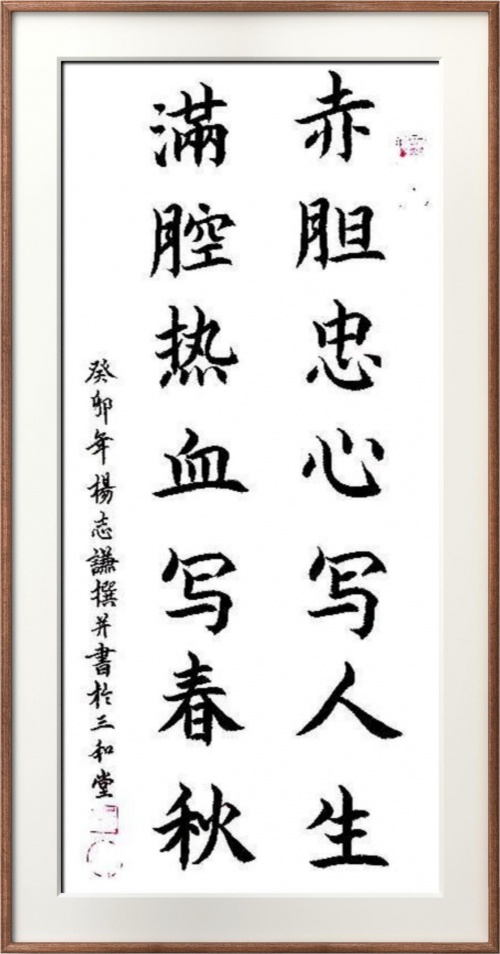 赤胆忠心写人生
滿腔热血写春秋
癸卯年楊志謙撰并書於三和堂